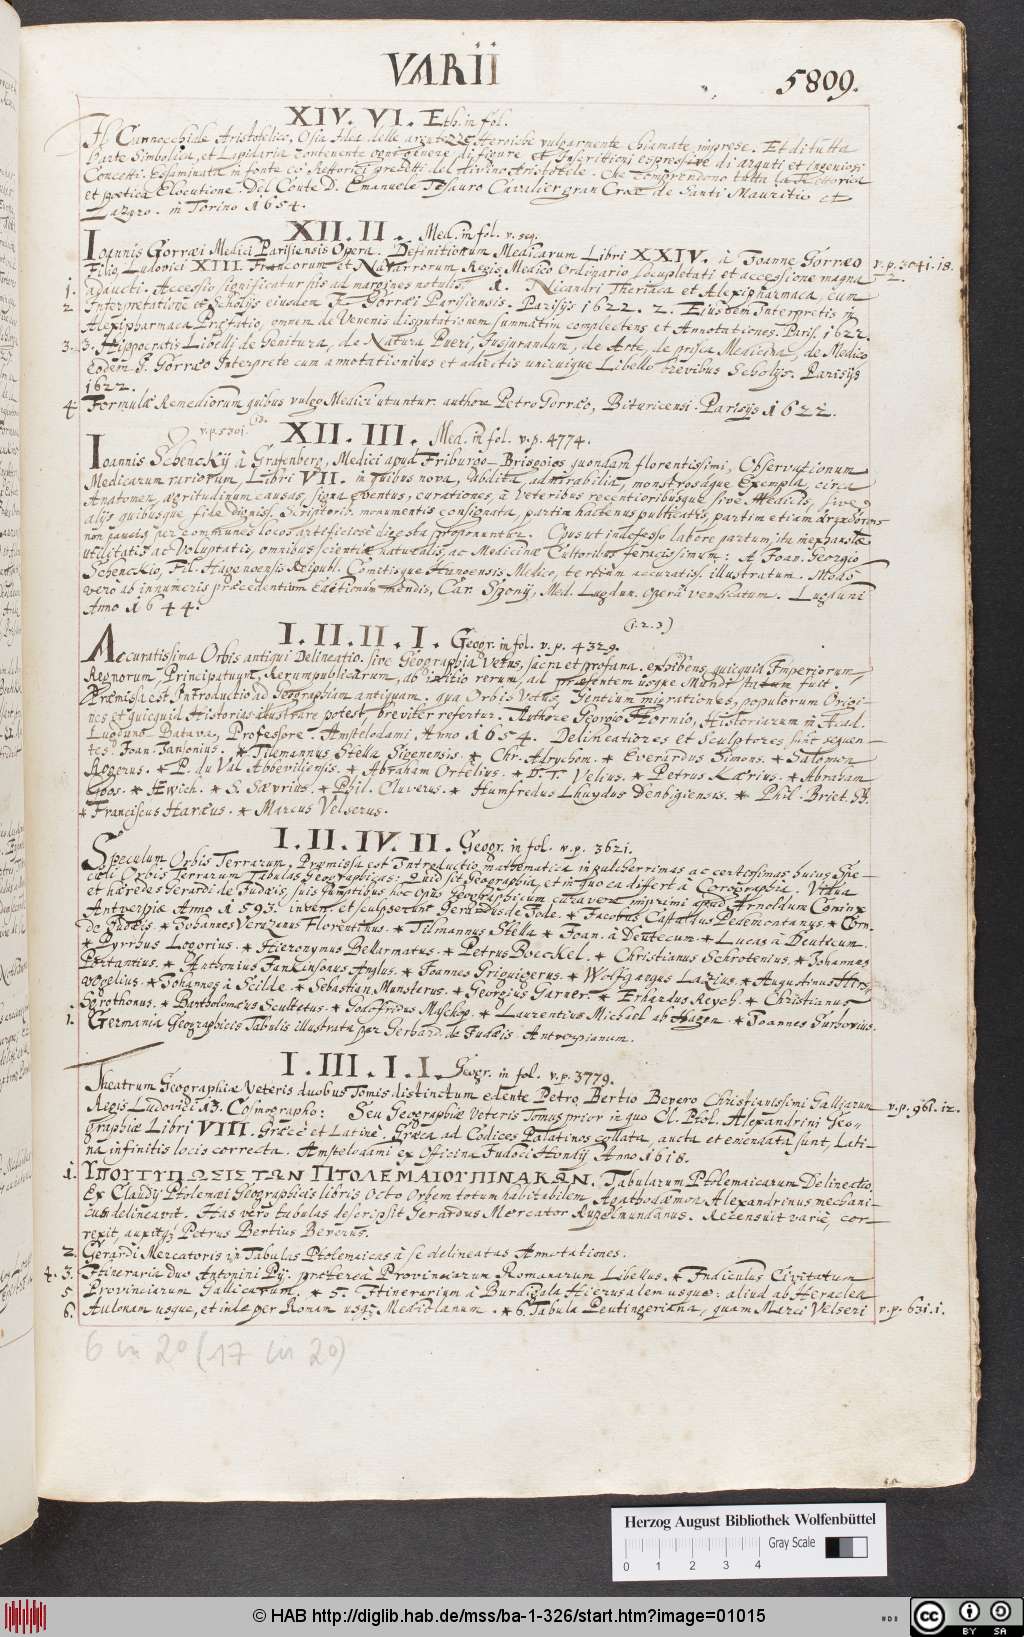 VARII
5809.
XIV. VI. Eth. in fol.
Il Cannocchiale Aristotelico, Osia Idea delle argutezze Heroiche vulgarmente chiamate imprese. Et di tutta
l'arte Simbolica, et Lapidaria contenente ogni genere di figure et Inscrittioni espressive di arguti et ingeniosi
Concetti. Esaminata in fonte co' Rettorici precetti del divino Aristotele. Che comprendono tutta la Rettorica
et poetica Elocutione. Del Conte D. Emanuele Tesauro Cavalier gran Croce de Santi Mauritio et
Lazaro. in Torino 1654.
XII. II. Med. in fol. v. seq.
Ioannis Gorraei Medici Parisiensis Opera. Definitionum Medicarum Libri XXIV. à Joanne Gorraeo
Filio, Ludovici XIII. Francorum et Navarrorum Regis Medico Ordinario locupletati et accessione magna
v. p. 3041. 18.
1. adaucti. Accessio significatur his ad margines notulis. 1. Nicandri Theriaca et Alexipharmaca, cum
2 Interpretatione et Scholijs eiusdem J. Gorraei Parisiensis. Parisijs 1622. 2. Eiusdem Interpretis in
Alexipharmaca Praefatio, omnem de Venenis disputationem summatim complectens et Annotationes. Paris. 1622.
3. 3. Hippocratis Libelli de Genitura, de Natura Pueri, Jusjurandum, de Arte, de prisca Medicina, de Medico
Eodem J. Gorraeo Interprete cum annotationibus et adiectis unicuique Libello brevibus Scholijs. Parisijs
1622.
4 Formulae Remediorum quibus vulgo Medici utuntur. authore Petro Gorraeo, Bituricensi. Parisijs 1622.
v. p. 5301.
XII. III. Med. in fol. v. p. 4774.
Ioannis Schenckij à Grafenberg, Medici apud Friburgo-Brisgoios quondam florentissimi, Observationum
Medicarum rariorum, Libri VII. in quibus nova, abdita, admirabilia, monstrosaque Exempla, circa
Anatomen, aegritudinum causas, signa eventus, curationes, à Veteribus recentioribusque sive Medicis, sive
alijs quibusque fide dignis. Scriptorib. monumentis consignata, partim hactenus publicatis, partim etiam
non paucis per communes locos artificiose digesta proponuntur. Opus ut indefesso labore partum, ita inexhaustae
utilitatis ac Voluptatis, omnibus scientiae naturalis, ac Medicinae Cultoribus feracissimum: A Joan. Georgio
Schenckio, Fil. Hagenoensis Reipubl. Comitisque Hanoensis Medico, tertium accuratiss. illustratum. Modo
vero ab innumeris praecedentium Editionum mendis, Car. Spony, Med. Lugdun. operâ vendicatum. Lugduni
Anno 1644.
(1. 2. 3)
I. II. II. I. Geogr. in fol. v. p. 4329.
Accuratissima Orbis antiqui Delineatio. sive Geographia Vetus, sacra et profana. exhibens quicquid Imperiorum,
Regnorum, Principatuum, Rerumpublicarum, ab initio rerum, ad praesentem usque Mundi statum fuit.
Praemissa est Introductio ad Geographiam antiquam. qua Orbis Vetus, Gentium migrationes, populorum Origi-
nes et quicquid Historias illustrare potest breviter refertur. Authore Georgio Hornio, Historiarum in Acad.
Lugduno Batava, Professore. Amstelodami, Anno 1654. Delineatores et Sculptores sunt sequen-
tes. Joan. Jansonius. * Tilemannus Stella Sigenensis. * Chr. Adrychom. * Everardus Simons. * Salomon
Rogerus. * P. du Val Abbevillensis. * Abraham Ortelius. * D. T. Velius. * Petrus Kaerius. * Abraham
Goos. * Ewich. * S. Saevrius. * Phil. Cluverus. * Humfredus Lhuydus Denbigiensis. * Phil. Briet.
* Franciscus Haraeus. * Marcus Velserus.
I. II. IV. II. Geogr. in fol. v. p. 3621.
Speculum Orbis Terrarum, Praemissa est Introductio mathematica in pulcherrimas ac certissimas huius Spe-
culi Orbis Terrarum Tabulas Geographicas: Quid sit Geographia, et in quo ea differt à Corographia. Vidua
et haeredes Gerardi de Judaeis, suis sumptibus hoc opus Geographicum curavere imprimi apud Arnoldum Coninx
Antverpiae Anno 1593. inven. et sculpserunt Gerardus de Jode. * Jacobus Castaldus Pedemontanus. * Corn.
de Judaeis. * Johannes Verazanus Florentinus. * Tilmannus Stella * Joan. à Deutecum. * Lucas à Deutecum.
* Pyrrhus Logorius. * Hieronymus Bellarmatus. * Petrus Boeckel. * Christianus Schrotenius. * Johannes
Portantius. * Anthonius Jankinsonus Anglus. * Joannes Griguigerus. * Wolfgangus Lazius. * Augustinus Hirs-
vogellius. * Johannes à Scilde. * Sebastian Munsterus. * Georgius Garner. * Erhardus Reych. * Christianus
Sgrothonus. * Bartholomaeus Scultetus. * Godofridus Maschop. * Laurentius Michael ab Hagen * Joannes Surhovius.
1. Germania Geographicis Tabulis illustrata per Gerhard. de Judaeis Antverpianum.
I. III. I. I. Geogr. in fol. v. p. 3779.
Theatrum Geographiae Veteris duobus Tomis distinctum edente Petro Bertio Bevero Christianissimi Galliarum
v. p. 961. 12.
Regis Ludovici 13. Cosmographo: Seu Geographiae Veteris Tomus prior in quo Cl. Ptol. Alexandrini Geo-
graphiae Libri VIII. Graecè et Latinè. Graeca ad Codices Palatinos collata, aucta et emendata sunt, Lati-
na infinitis locis correcta. Amstelodami ex Officina Judoci Hondij Anno 1618.
1. ΥΠΟΤΥΠΩΣΙΣ ΤΩΝ ΠΤΟΛΕΜΑΙΟΥ ΠΙΝΑΚΩΝ. Tabularum Ptolemaicarum Delineatio.
Ex Claudij Ptolemaei Geographicis libris Octo Orbem totum habitabilem Agathodaemon Alexandrinus mechani-
cus delineavit. Has verò tabulas descripsit Gerardus Mercator Rupelmundanus. Recensuit variè, cor-
rexit, auxitq; Petrus Bertius Beverus.
2. Gerardi Mercatoris in Tabulas Ptolemaicas à se delineatas Annotationes.
4. 3. Itineraria duo Antonini Pij. praeterea Provinciarum Romanarum Libellus. * Indiculus Civitatum
5 Provinciarum Gallicarum. * 5. Itinerarium à Burdigala Hierusalem usque: aliud ab Heraclea
6. Aulonam usque, et inde per Romam usq; Mediolanum. * 6. Tabula Peutingeriana, quam Marci Velseri
v. p. 631. 1.
6 in 2° (17 in 2°)
Herzog August Bibliothek Wolfenbüttel
Gray Scale
0 1 2 3 4
© HAB http://diglib.hab.de/mss/ba-1-326/start.htm?image=01015
cc BY SA